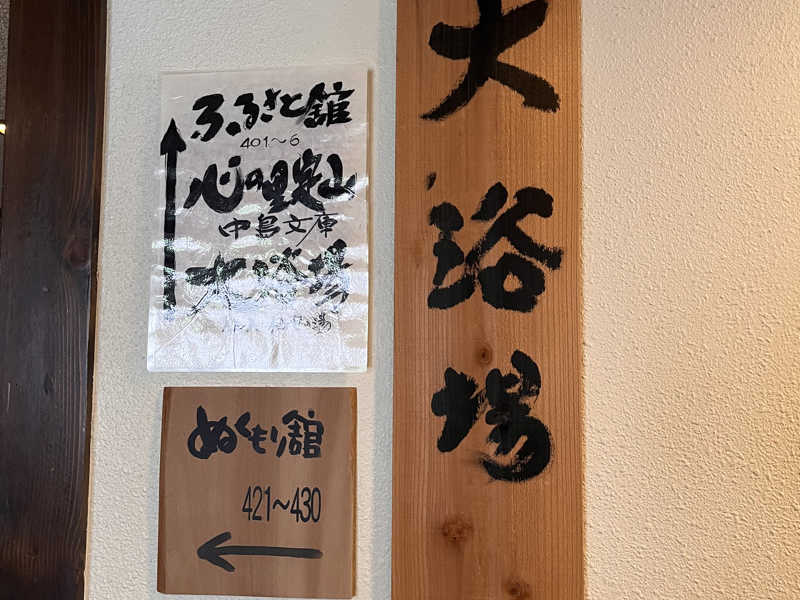 ふるさと舘
401〜6
心の里定山
中島文庫
大浴場
ぬくもり舘
421〜430
大浴場